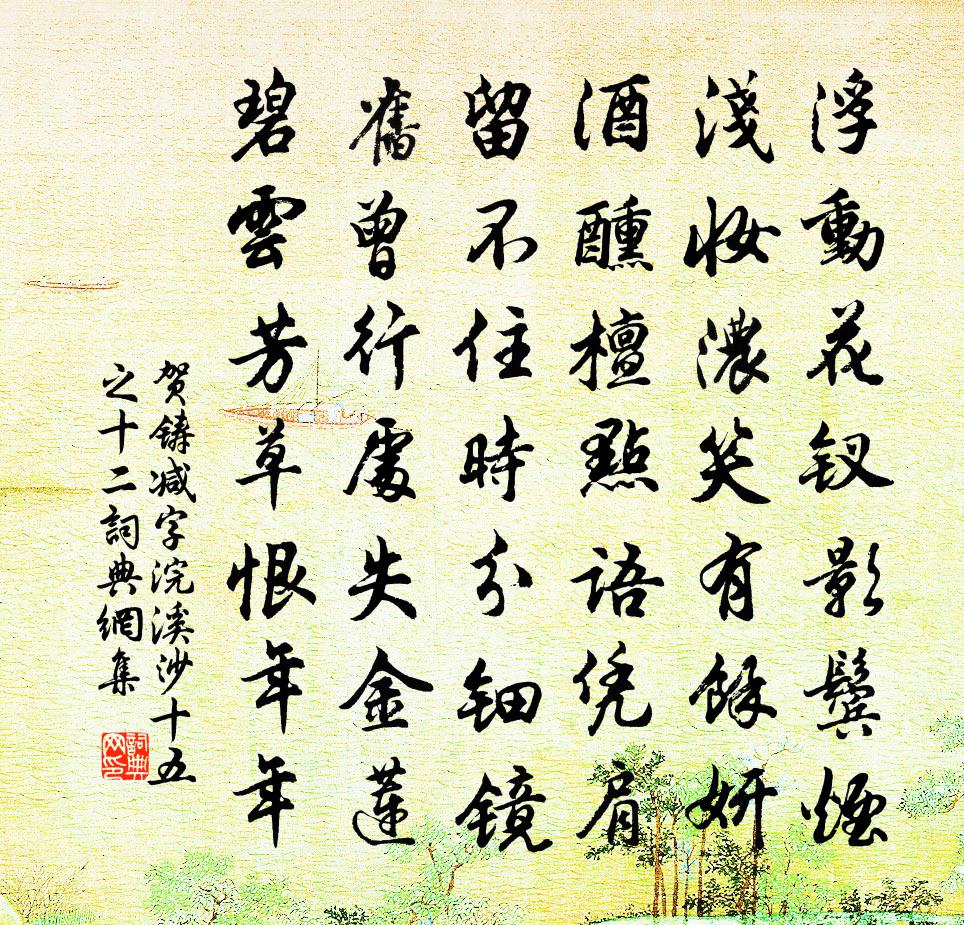 浮動花钗影鬓煙
淺妝濃笑有餘妍
酒醺檀點語凭肩
留不住時分钿镜
舊曾行處失金蓮
碧雲芳草恨年年
贺鑄减字浣溪沙十五
之十二詞典網集
詞典网印